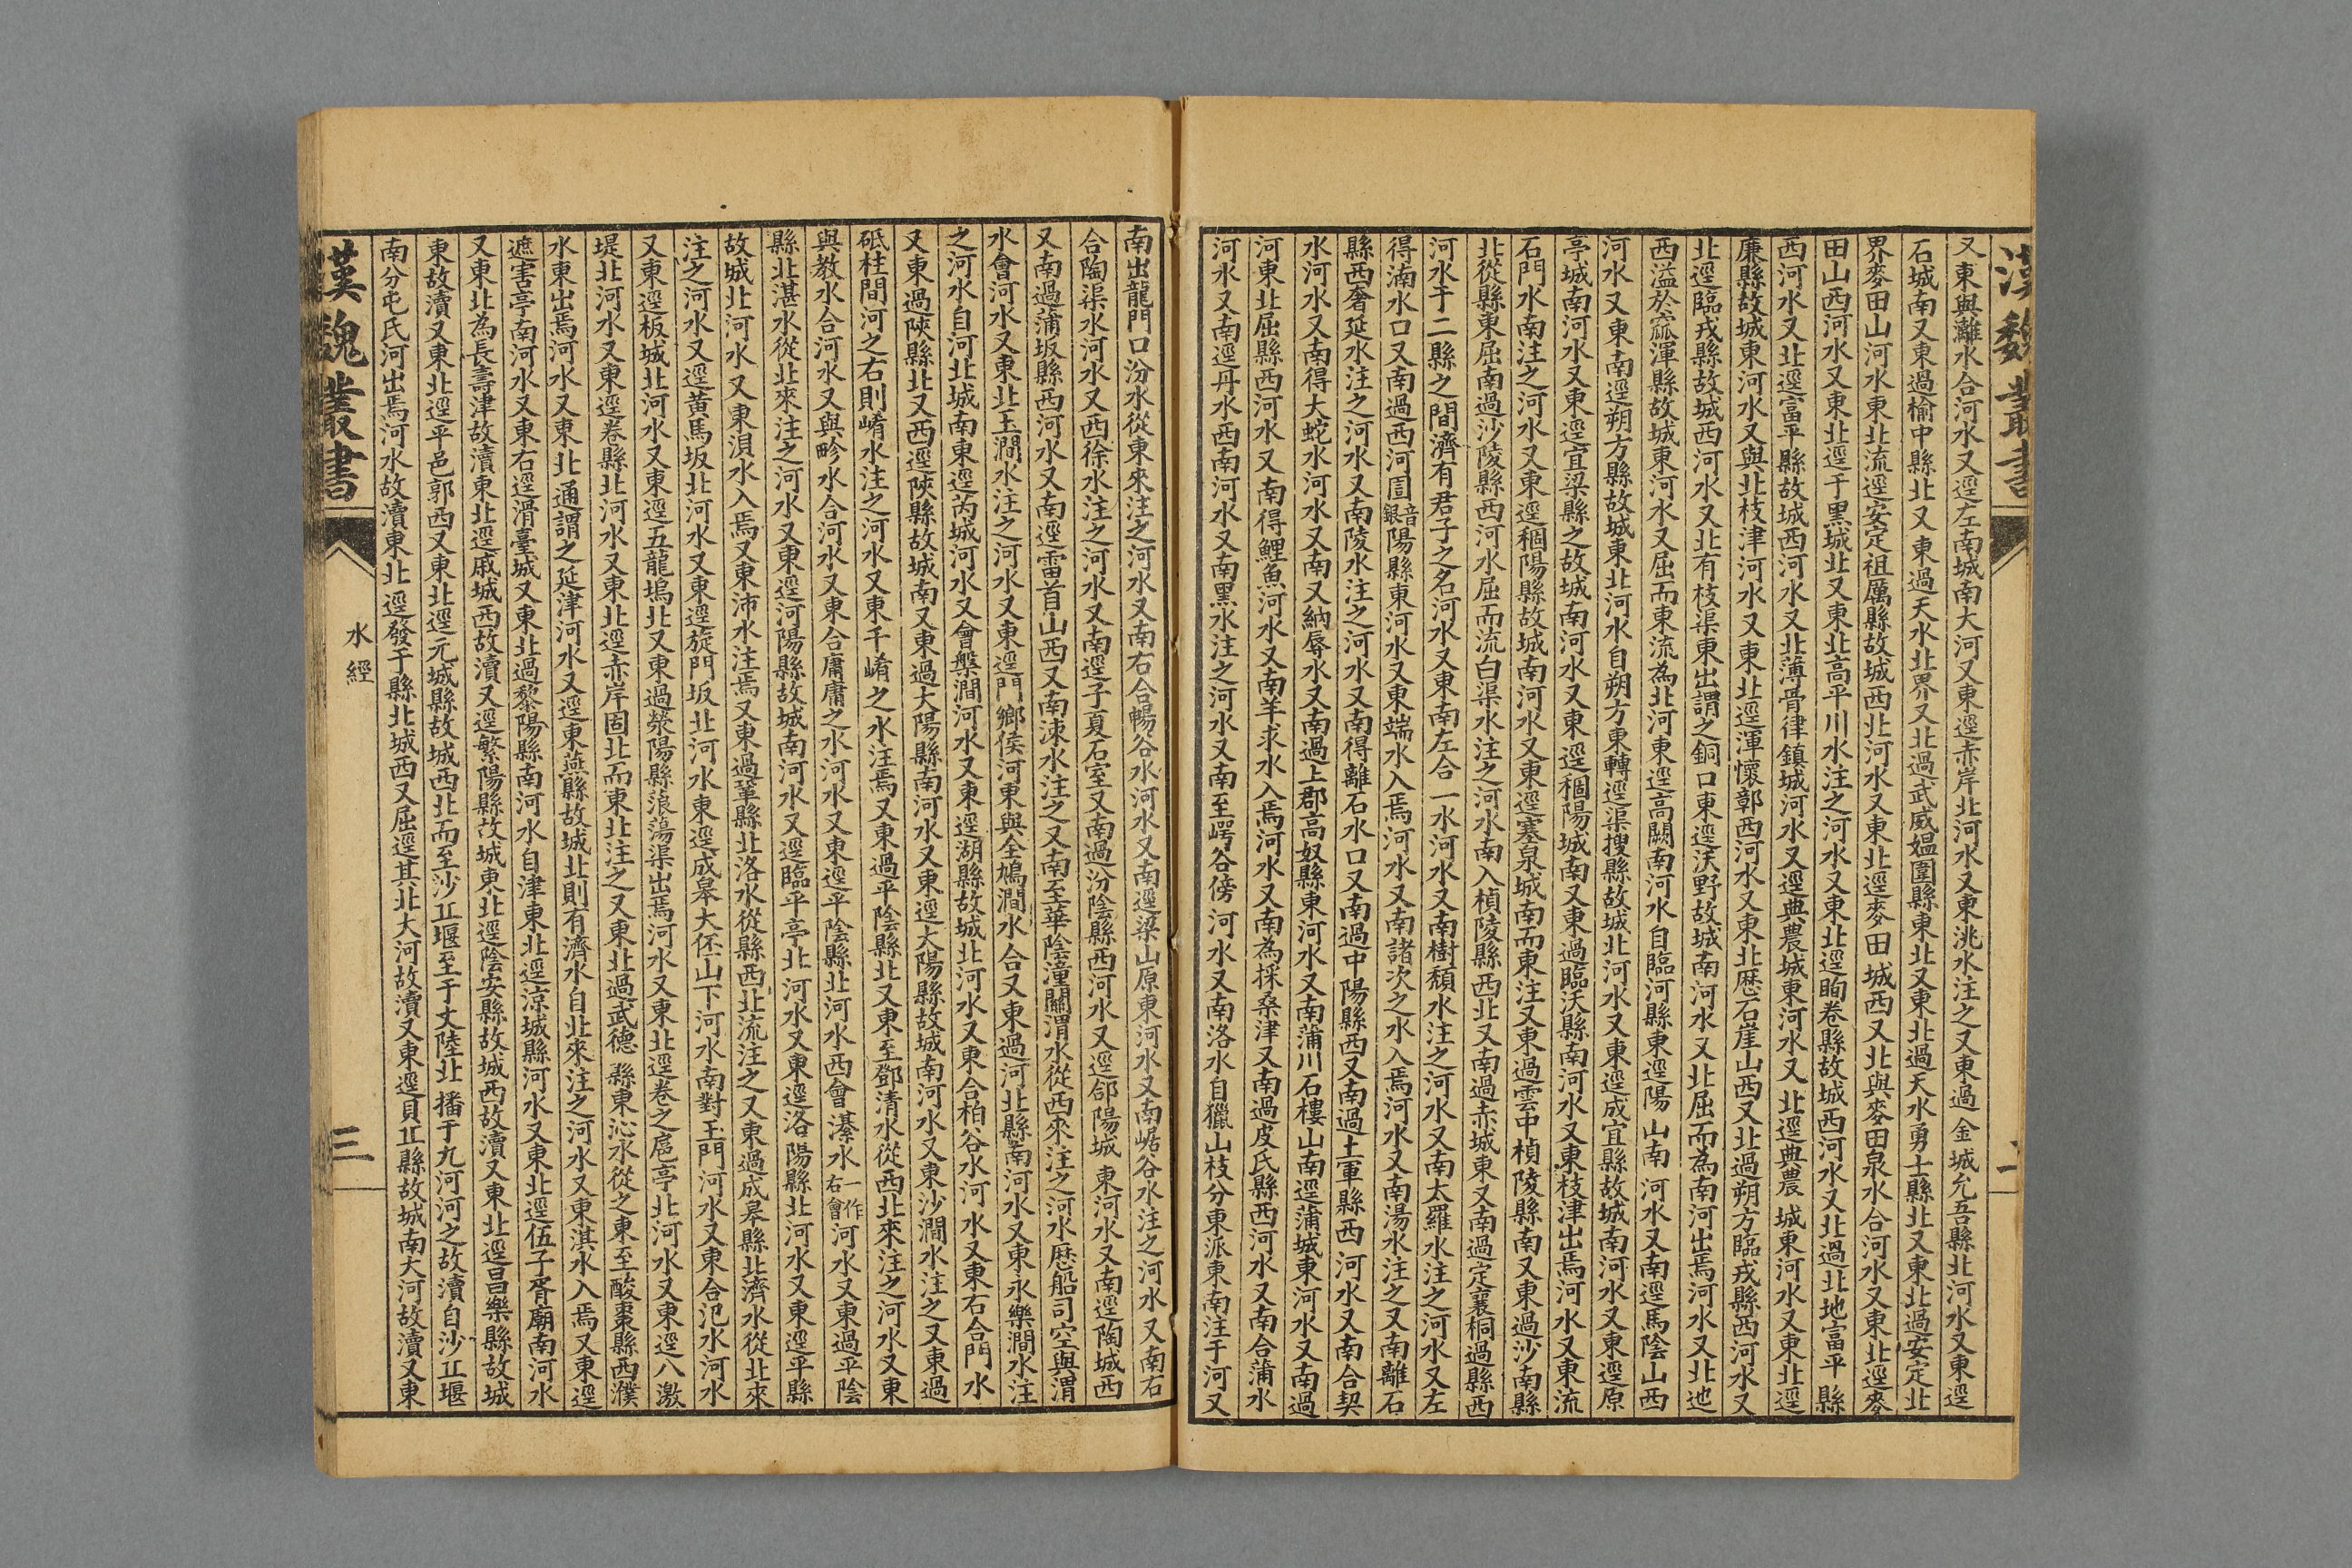 漢魏叢書
又東與離水合河水又逕左南城南大河又東逕赤岸北河水又東洮水注之又東過金城允吾縣北河水又東逕
石城南又東過榆中縣北又東過天水北界又北過武威媼圍縣東北又東北過天水勇士縣北又東北過安定北
界麥田山河水東北流逕安定祖厲縣故城西北河水又東北逕麥田城西又北與麥田泉水合河水又東北逕麥
田山西河水又東北逕于黑城北又東北高平川水注之河水又東北逕眴卷縣故城西河水又北過北地富平縣
西河水又北逕富平縣故城西河水又北薄骨律鎮城河水又逕典農城東河水又北逕典農城東河水又東北逕
廉縣故城東河水又與北枝津河水又東北逕渾懷鄣西河水又東北歷石崖山西又北過朔方臨戎縣西河水又
北逕臨戎縣故城西河水又北有枝渠東出謂之銅口東逕沃野故城南河水又北屈而為南河出焉河水又北迆
西溢於窳渾縣故城東河水又屈而東流為北河東逕高闕南河水自臨河縣東逕陽山南河水又南逕馬陰山西
河水又東南逕朔方縣故城東北河水自朔方東轉逕渠搜縣故城北河水又東逕成宜縣故城南河水又東逕原
亭城南河水又東逕宜梁縣之故城南河水又東逕稒陽城南又東過臨沃縣南河水又東枝津出焉河水又東流
石門水南注之河水又東逕稒陽縣故城南河水又東逕塞泉城南而東注又東過雲中楨陵縣南又東過沙南縣
北從縣東屈南過沙陵縣西河水屈而流白渠水注之河水南入楨陵縣西北又南過赤城東又南過定襄桐過縣西
河水于二縣之間濟有君子之名河水又東南左合一水河水又南樹頹水注之河水又南太羅水注之河水又左
得湳水口又南過西河圁音銀陽縣東河水又東端水入焉河水又南諸次之水入焉河水又南湯水注之又南離石
縣西奢延水注之河水又南陵水注之河水又南得離石水口又南過中陽縣西又南過土軍縣西河水又南合契
水河水又南得大蛇水河水又南又納辱水又南過上郡高奴縣東河水又南蒲川石樓山南逕蒲城東河水又南過
河東北屈縣西河水又南得鯉魚河水又南羊求水入焉河水又南為採桑津又南過皮氏縣西河水又南合蒲水
河水又南逕丹水西南河水又南黑水注之河水又南至崿谷傍河水又南洛水自獵山枝分東派東南注于河又
南出龍門口汾水從東來注之河水又南右合暢谷水河水又南逕梁山原東河水又南崌谷水注之河水又南右
合陶渠水河水又西徐水注之河水又南逕子夏石室又南過汾陰縣西河水又逕郃陽城東河水又南逕陶城西
又南過蒲坂縣西河水又南逕雷首山西又南涑水注之又南至華陰潼關渭水從西來注之河水歷船司空與渭
水會河水又東北玉澗水注之河水又東逕門鄉侯河東與全鳩澗水合又東過河北縣南河水又東永樂澗水注
之河水自河北城南東逕芮城河水又會槃澗河水又東逕湖縣故城北河水又東合柏谷水河水又東右合門水
又東過陝縣北又西逕陝縣故城南又東過大陽縣南河水又東逕大陽縣故城南河水又東沙澗水注之又東過
砥柱間河之右則崤水注之河水又東千崤之水注焉又東過平陰縣北又東至鄧清水從西北來注之河水又東
與教水合河水又與畛水合河水又東合庸庸之水河水又東逕平陰縣北河水西會瀿水一作右會河水又東過平陰
縣北湛水從北來注之河水又東逕河陽縣故城南河水又逕臨平亭北河水又東逕洛陽縣北河水又東逕平縣
故城北河水又東溴水入焉又東沛水注焉又東過鞏縣北洛水從縣西北流注之又東過成皋縣北濟水從北來
注之河水又逕黃馬坂北河水又東逕旋門坂北河水東逕成皋大伾山下河水南對玉門河水又東合汜水河水
又東逕板城北河水又東逕五龍塢北又東過滎陽縣蒗蕩渠出焉河水又東北逕卷之扈亭北河水又東逕八激
堤北河水又東逕卷縣北河水又東北逕赤岸固北而東北注之又東北過武德縣東沁水從之東至酸棗縣西濮
水東出焉河水又東北通謂之延津河水又逕東燕縣故城北則有濟水自北來注之河水又東淇水入焉又東逕
遮害亭南河水又東右逕滑臺城又東北過黎陽縣南河水自津東北逕涼城縣河水又東北逕伍子胥廟南河水
又東北為長壽津故瀆東北逕戚城西故瀆又逕繁陽縣故城東北逕陰安縣故城西故瀆又東北逕昌樂縣故城
東故瀆又東北逕平邑郭西又東北逕元城縣故城西北而至沙丘堰至于大陸北播于九河河之故瀆自沙丘堰
南分屯氏河出焉河水故瀆東北逕發干縣北城西又屈逕其北大河故瀆又東逕貝丘縣故城南大河故瀆又東
漢魏叢書
水經
三